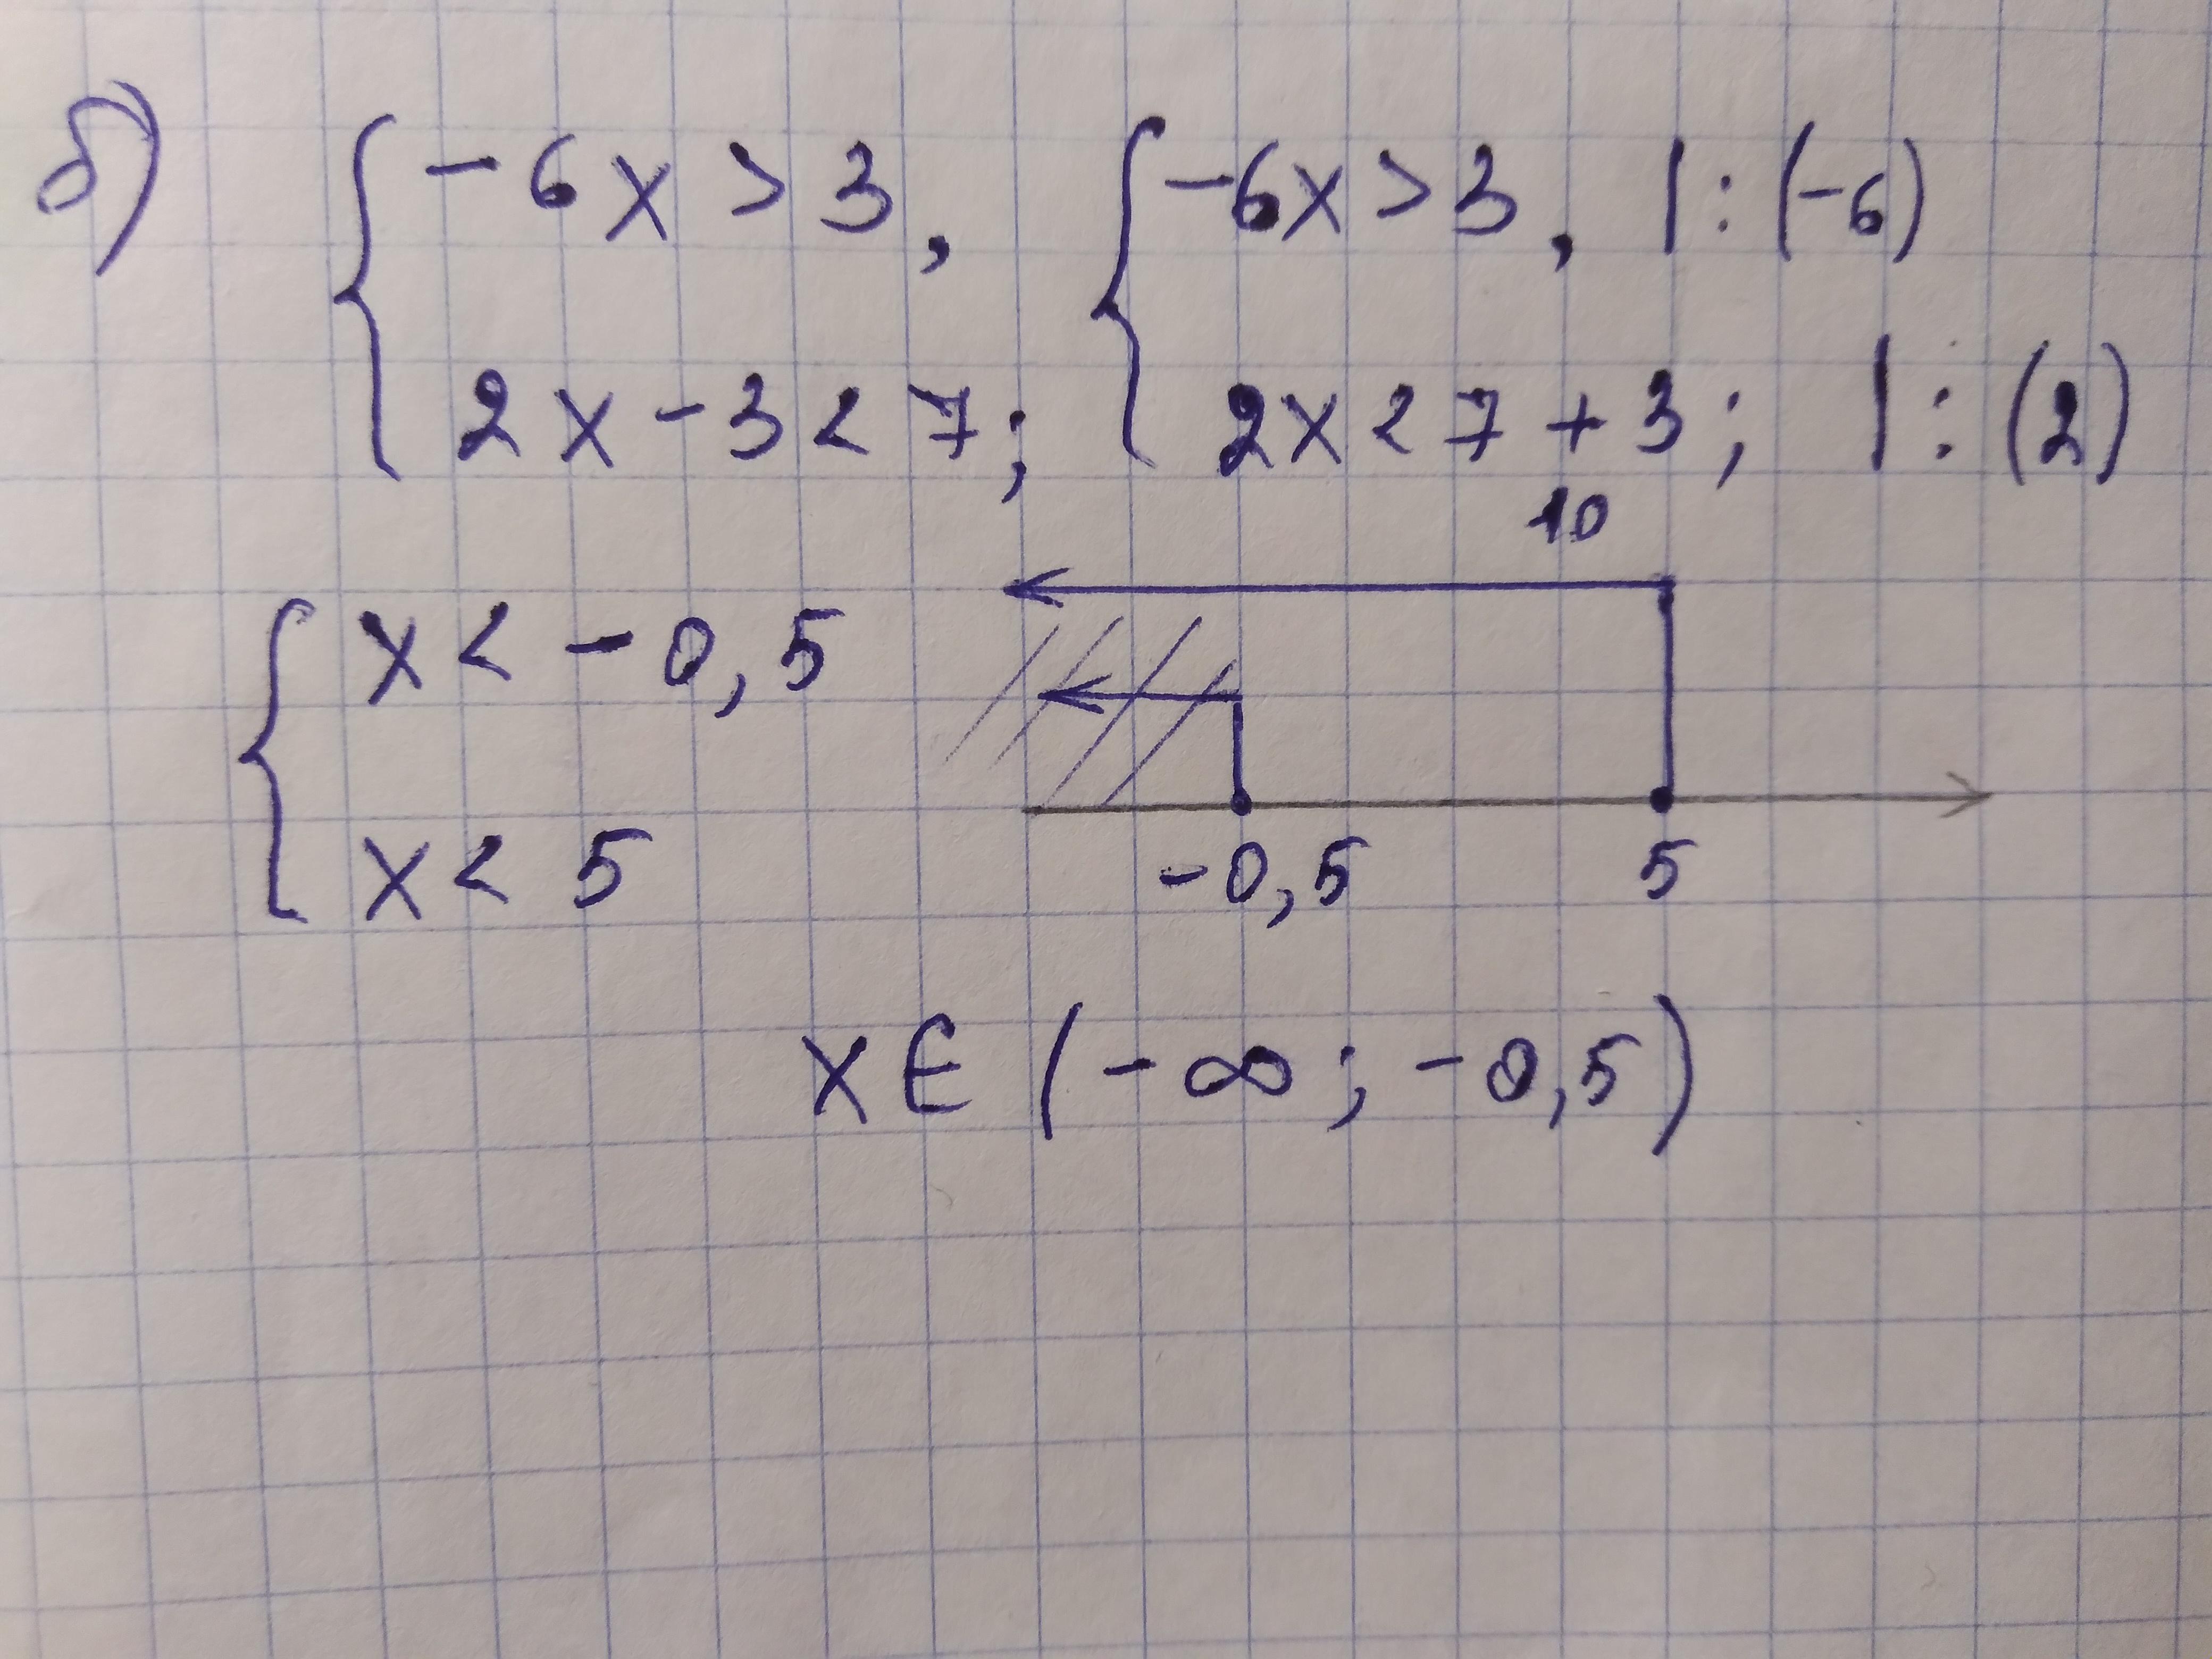 б) { -6x > 3, { -6x > 3, | : (-6)
2x - 3 < 7; 2x < 7 + 3; | : (2)
10
{ x < -0,5
x < 5
-0,5 5
x ∈ (-∞; -0,5)